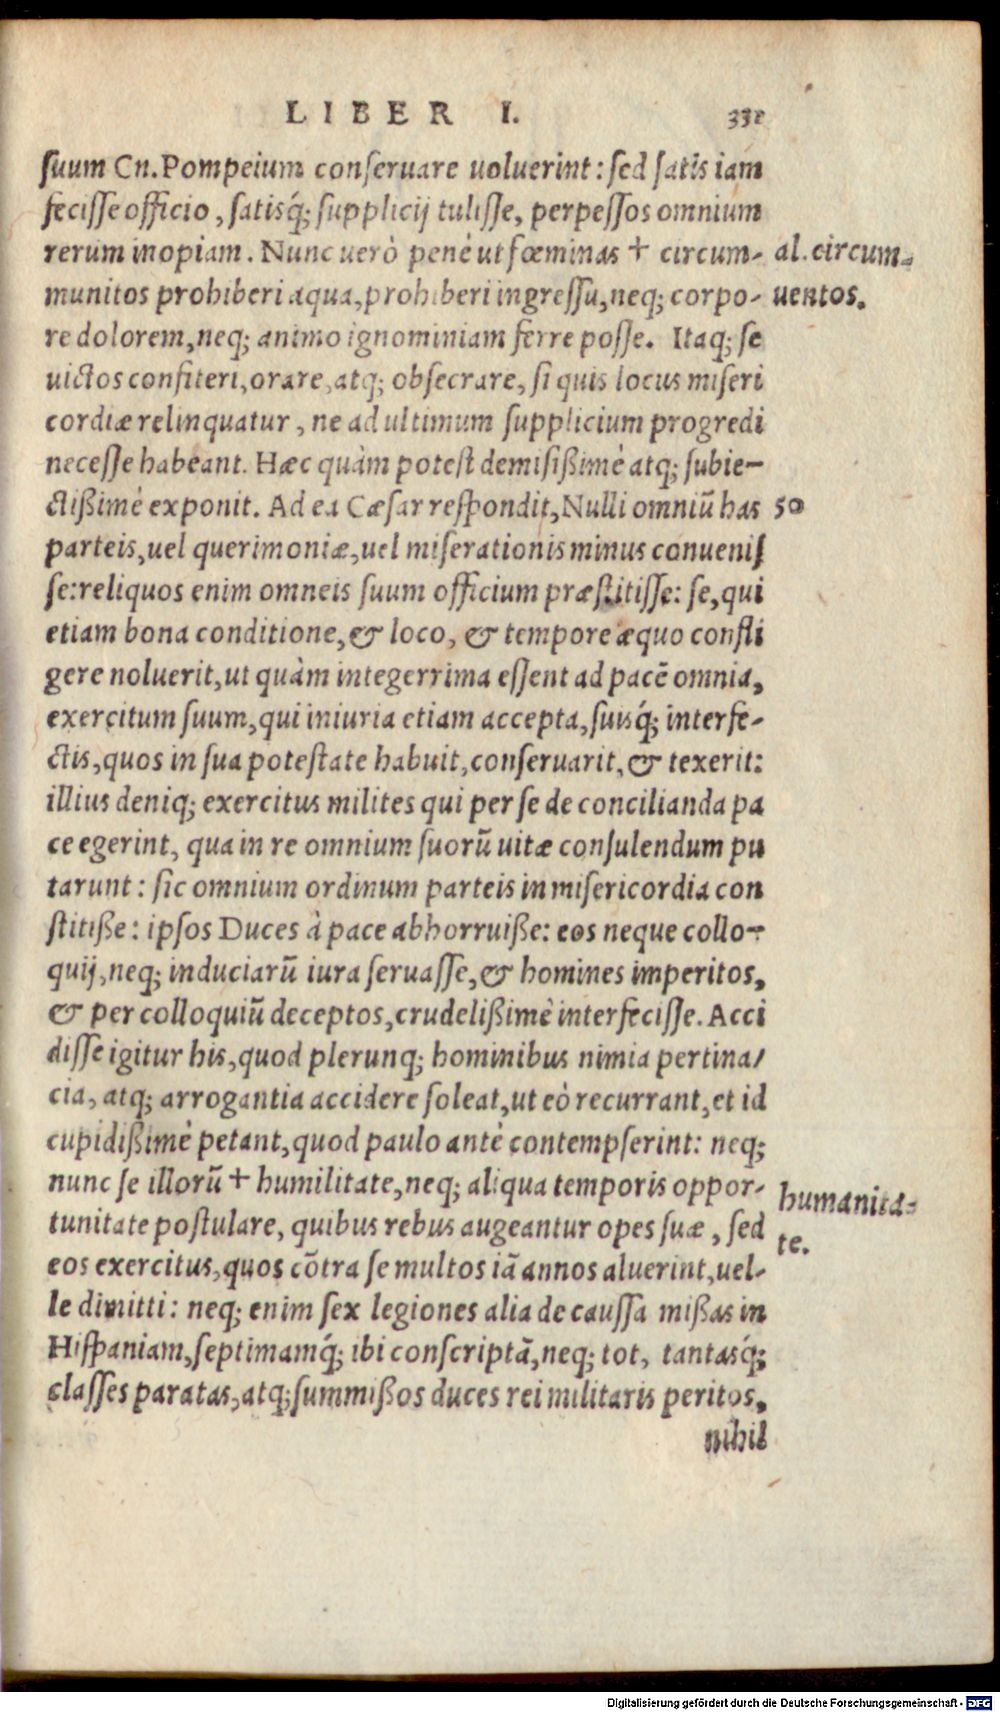 LIBER I. 331
suum Cn. Pompeium conseruare uoluerint: sed satis iam
fecisse officio, satisq́; supplicij tulisse, perpessos omnium
rerum inopiam. Nunc uerò penè ut fœminas + circum-
al. circum=
munitos prohiberi aqua, prohiberi ingressu, neq; corpo-
uentos.
re dolorem, neq; animo ignominiam ferre posse. Itaq; se
uictos confiteri, orare, atq; obsecrare, si quis locus miseri
cordiæ relinquatur, ne ad ultimum supplicium progredi
necesse habeant. Hæc quàm potest demisißimè atq; subie-
ctißimè exponit. Ad ea Cæsar respondit, Nulli omniū has
50
parteis, uel querimoniæ, uel miserationis minus conuenis
se: reliquos enim omneis suum officium præstitisse: se, qui
etiam bona conditione, & loco, & tempore æquo confli
gere noluerit, ut quàm integerrima essent ad pacē omnia,
exercitum suum, qui iniuria etiam accepta, suisq́; interfe-
ctis, quos in sua potestate habuit, conseruarit, & texerit:
illius deniq; exercitus milites qui per se de concilianda pa
ce egerint, qua in re omnium suorū uitæ consulendum pu
tarunt: sic omnium ordinum parteis in misericordia con
stitiße: ipsos Duces à pace abhorruiße: eos neque collo-
quij, neq; induciarū iura seruasse, & homines imperitos,
& per colloquiū deceptos, crudelißimè interfecisse. Acci
disse igitur his, quod plerunq; hominibus nimia pertina/
cia, atq; arrogantia accidere soleat, ut eò recurrant, et id
cupidißimè petant, quod paulo antè contempserint: neq;
nunc se illorū + humilitate, neq; aliqua temporis oppor-
humanita=
tunitate postulare, quibus rebus augeantur opes suæ, sed
te.
eos exercitus, quos cōtra se multos iā annos aluerint, uel-
le dimitti: neq; enim sex legiones alia de caussa mißas in
Hispaniam, septimamq́; ibi conscriptā, neq; tot, tantasq́;
classes paratas, atq; summißos duces rei militaris peritos,
nihil
Digitalisierung gefördert durch die Deutsche Forschungsgemeinschaft - DFG